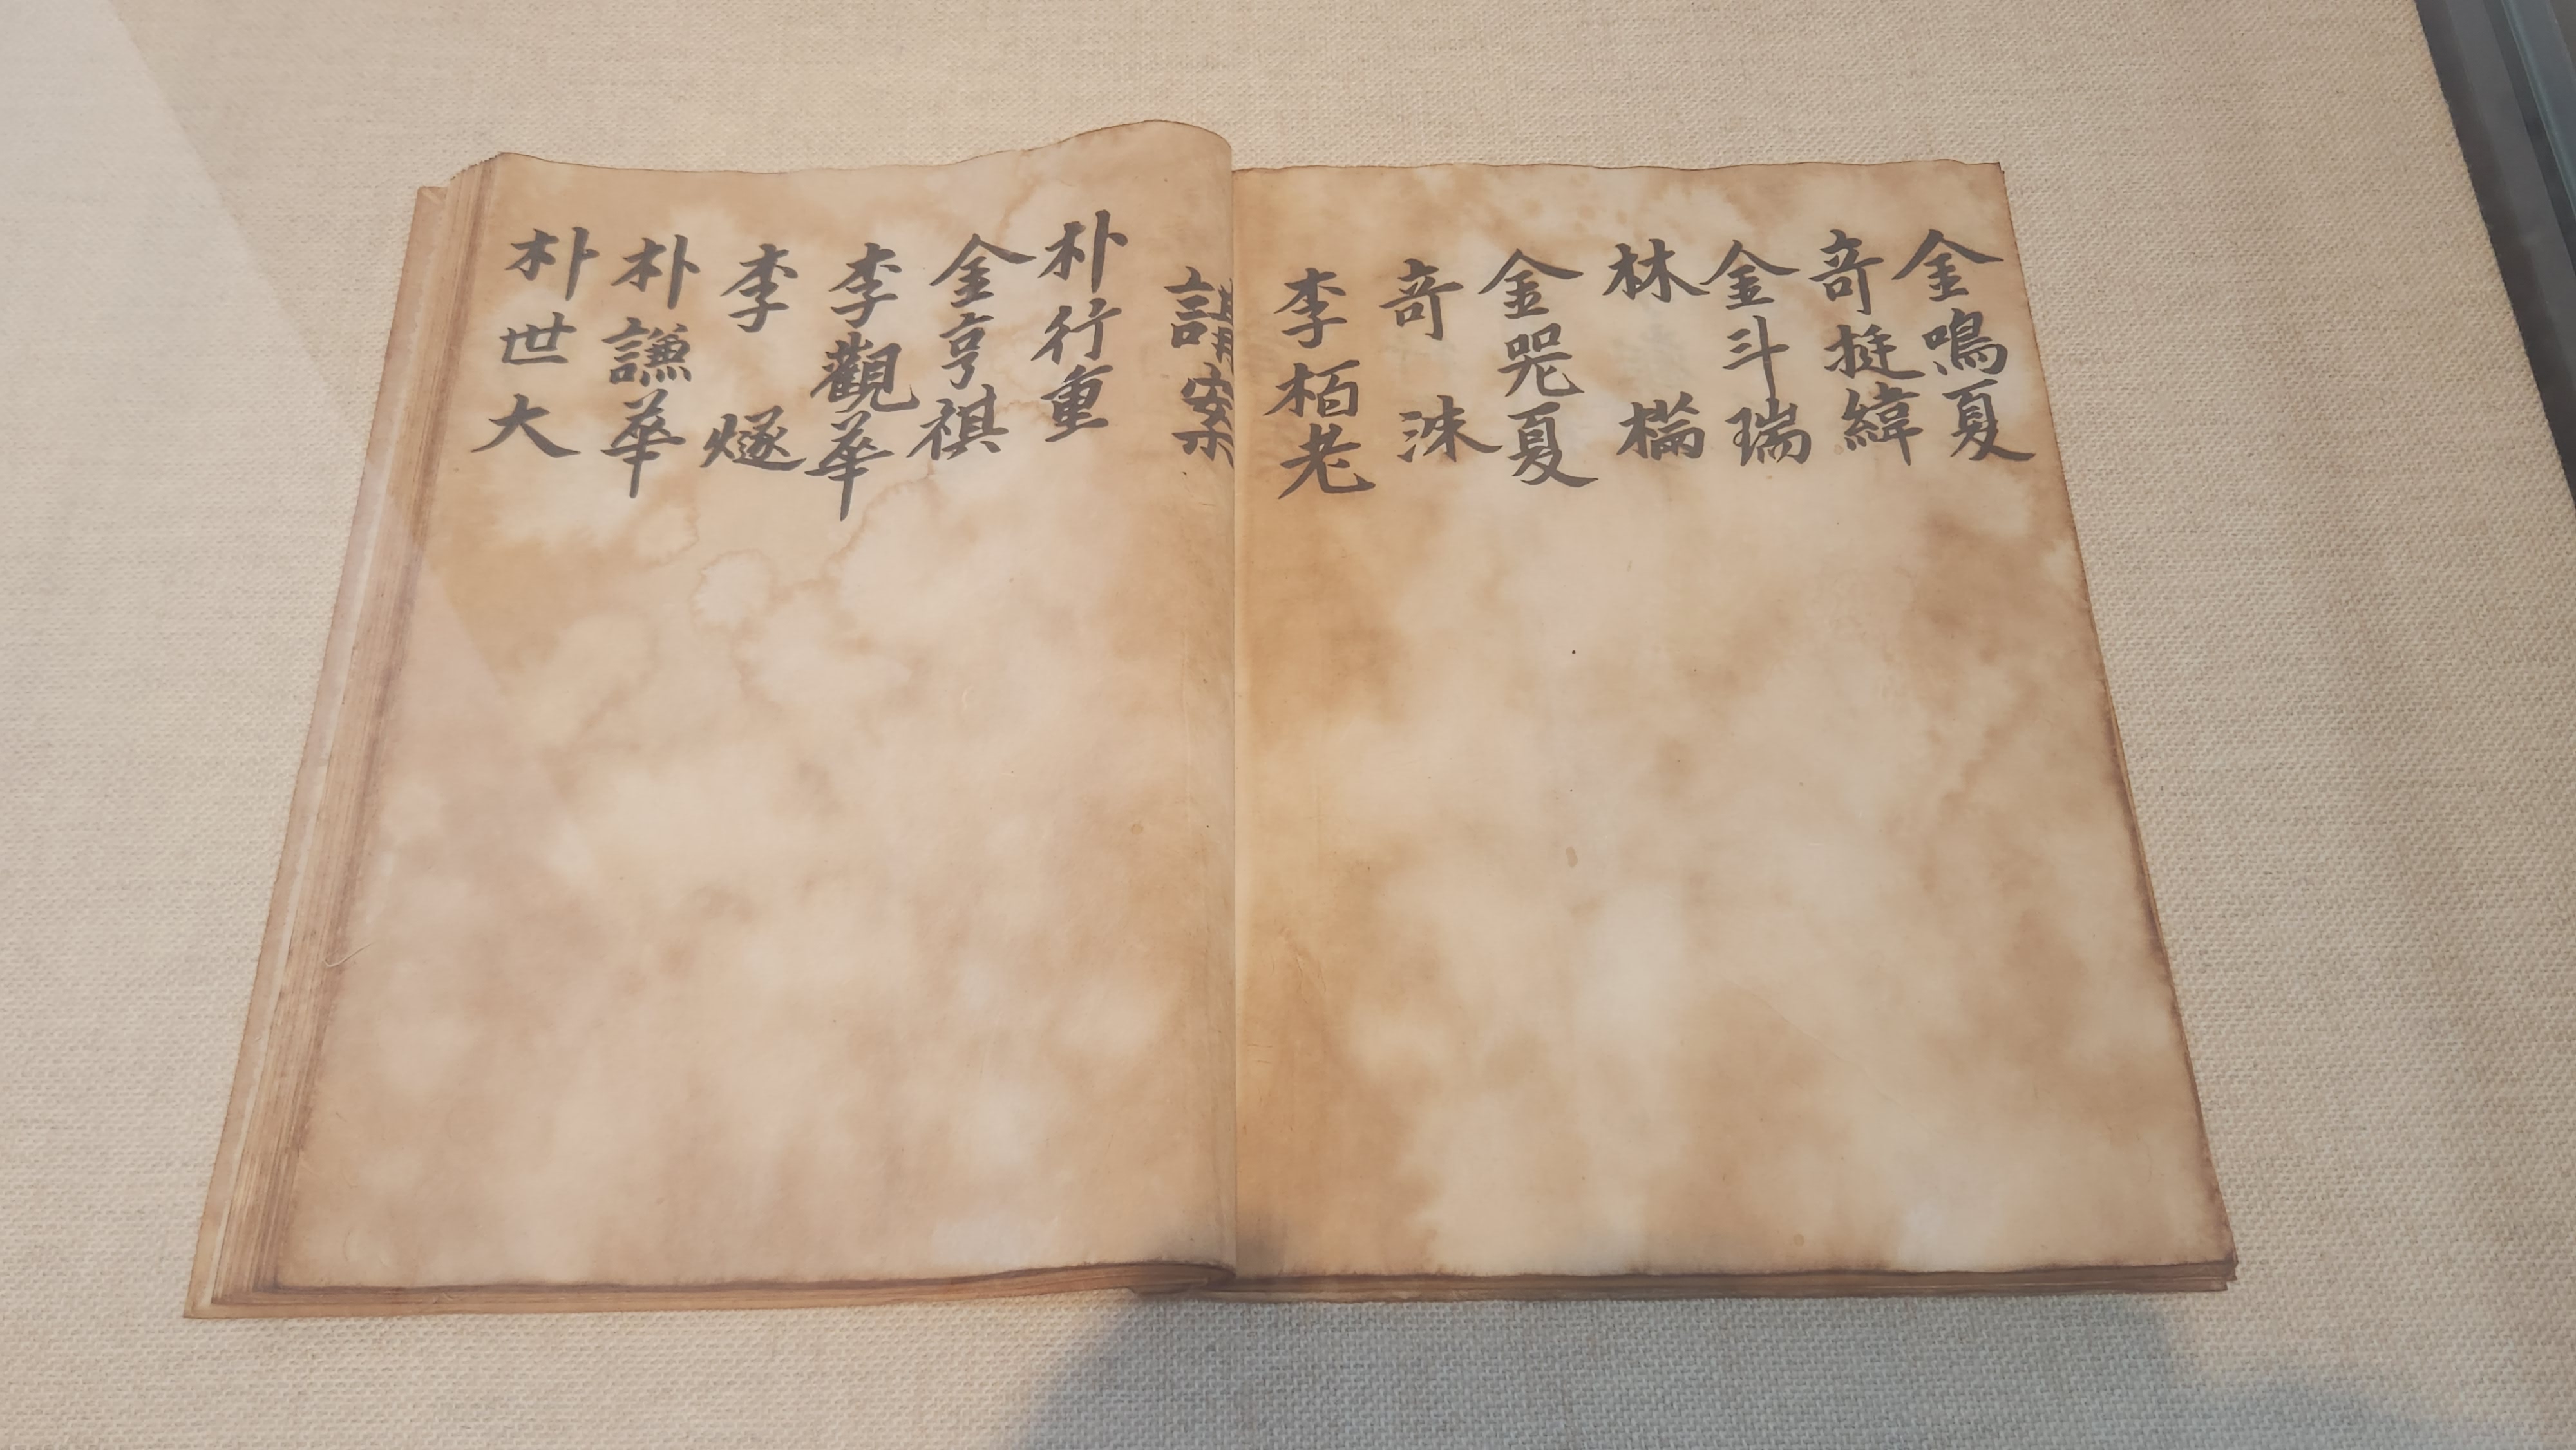 金鳴夏
奇挺緯
金斗瑞
林 楡
金兕夏
奇 洙
李栢老
講案
朴行重
金亨祺
李觀華
李 燧
朴謙華
朴世大